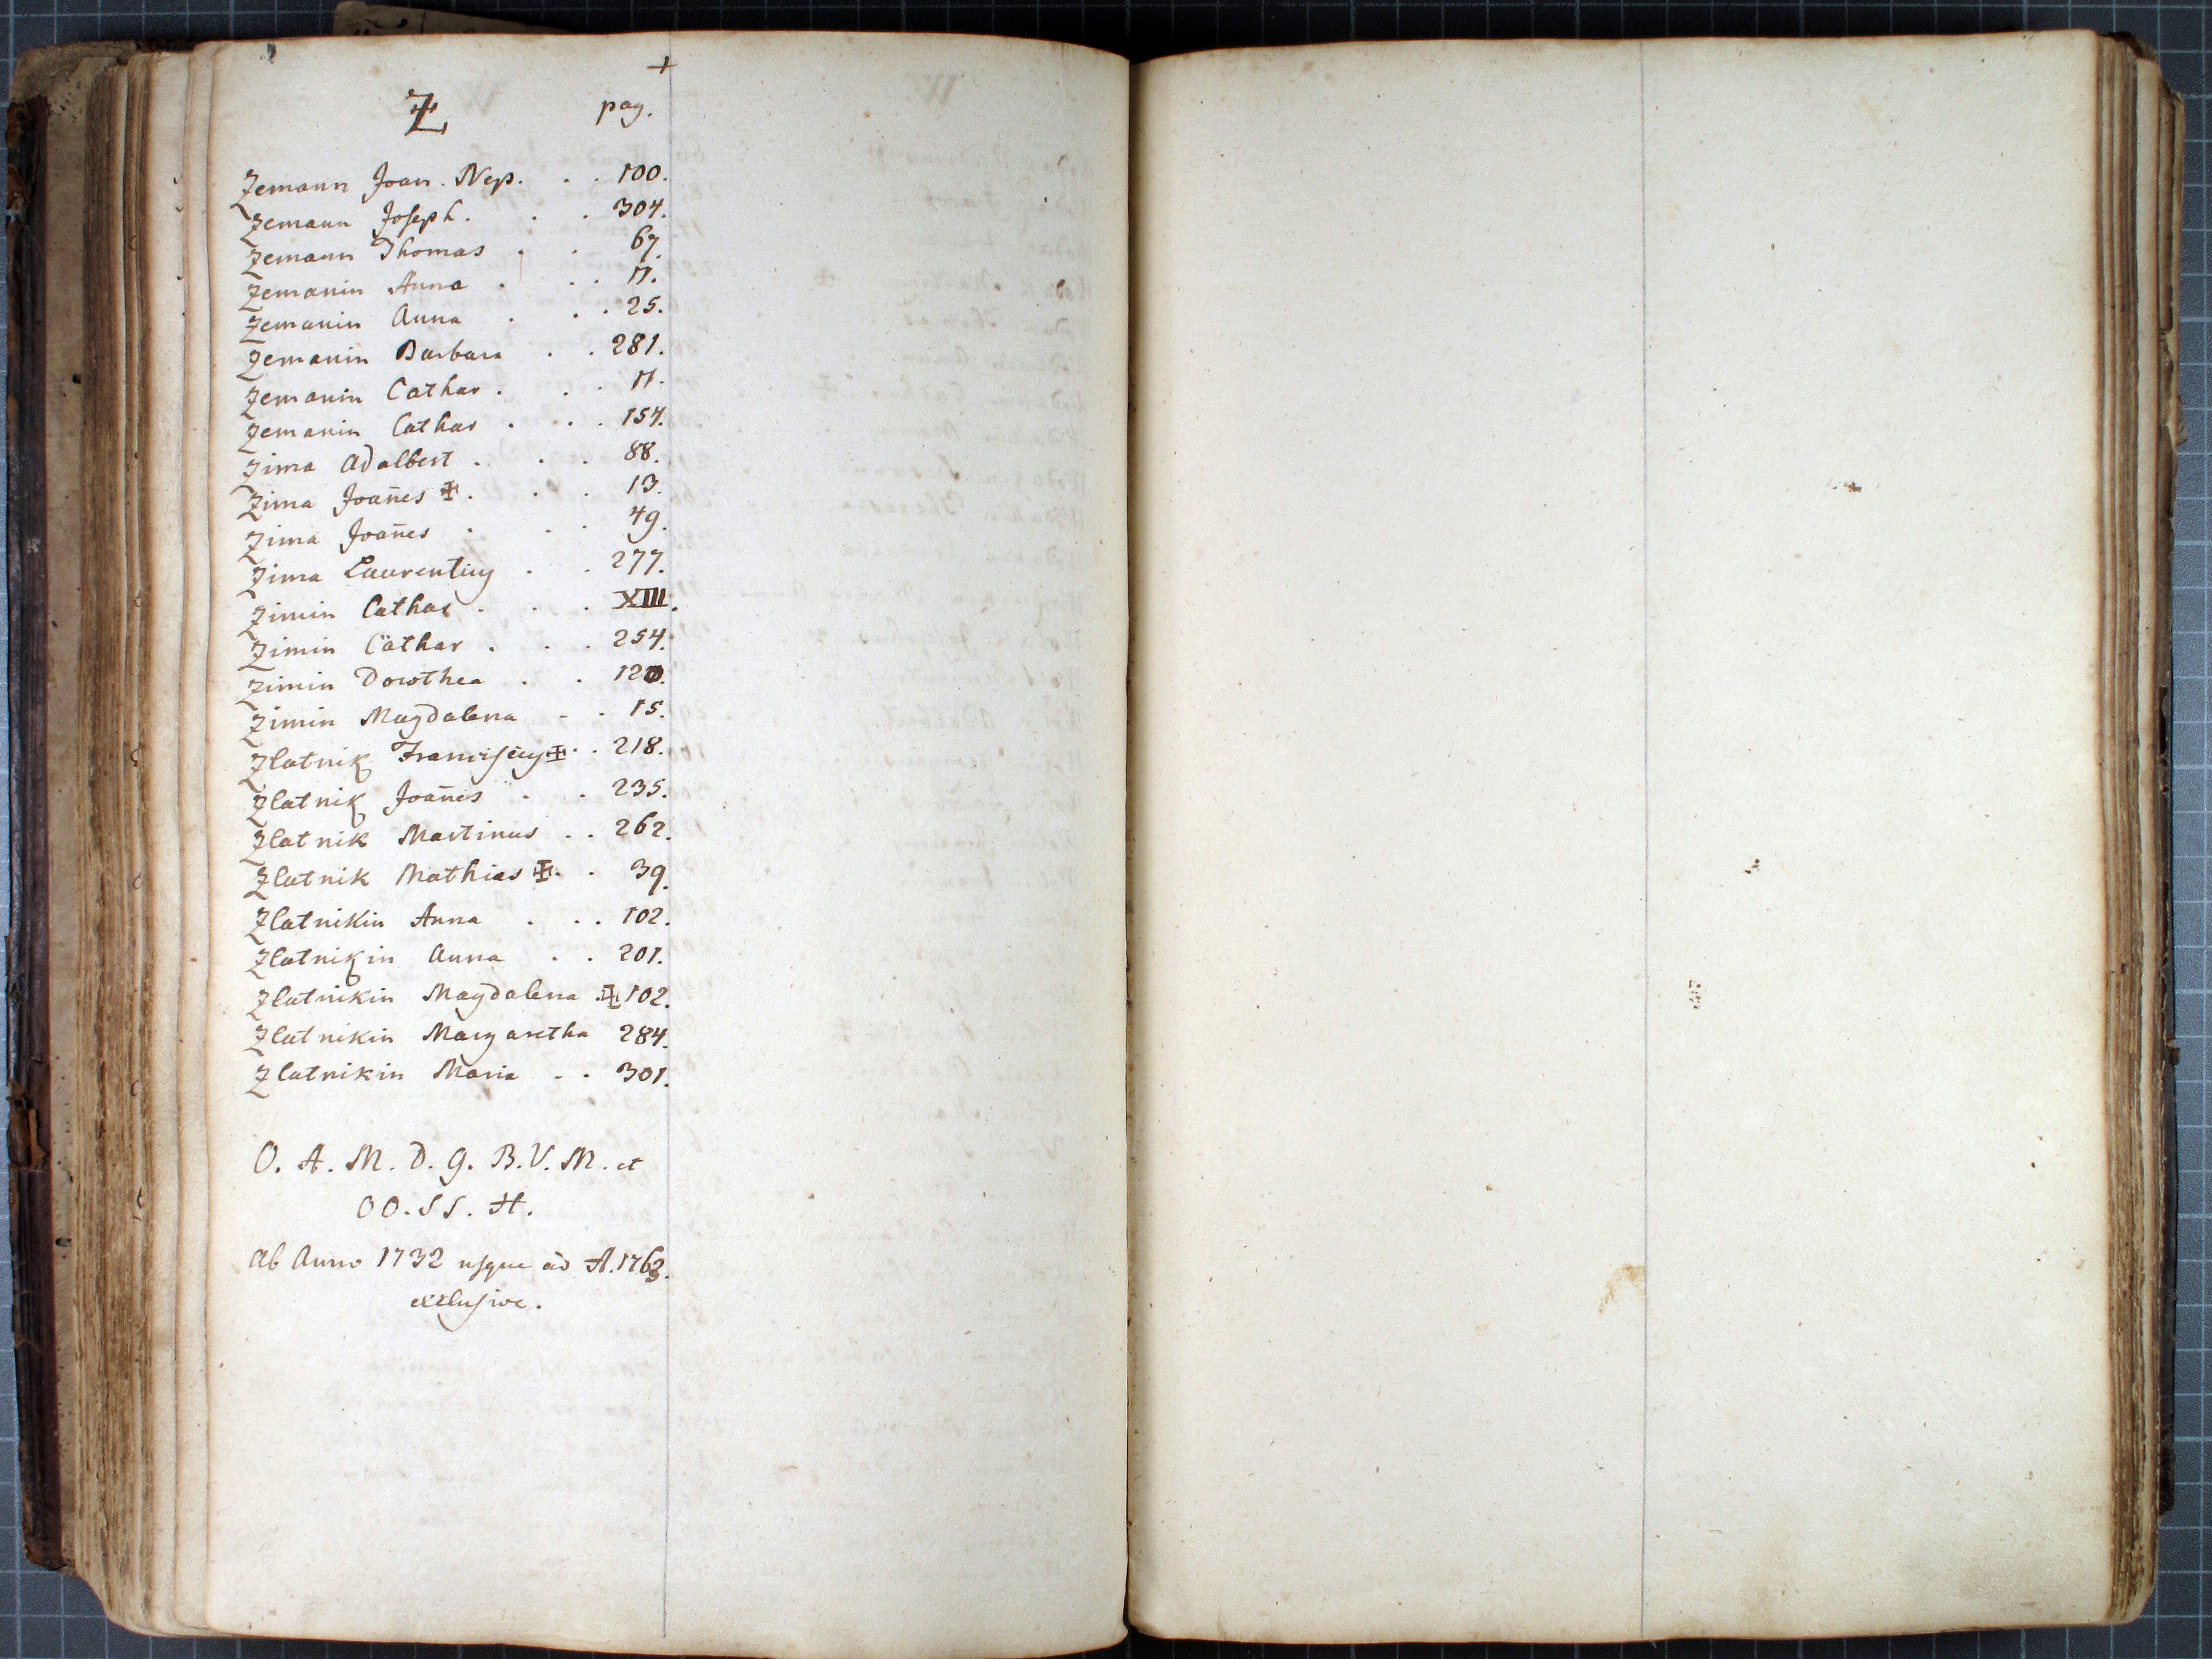 +
Z pag.
Zemann Joan. Nep. . . 100.
Zemann Joseph. . . 304.
Zemann Thomas . . 67.
Zemanin Anna . . . 17.
Zemanin Anna . . . 25.
Zemanin Barbara . . 281.
Zemanin Cathar . . . 17.
Zemanin Cathar . . . 154.
Zima Adalbert . . . 88.
Zima Joan̄es ✠ . . . 13.
Zima Joan̄es . . . 49.
Zima Laurentius . . 277.
Zimin Cathar . . . XIII.
Zimin Cathar . . . 254.
Zimin Dorothea . . 120.
Zimin Magdalena . . 15.
Zlatnik Franciscus ✠ . . 218.
Zlatnik Joan̄es . . 235.
Zlatnik Martinus . . 262.
Zlatnik Mathias ✠ . . 39.
Zlatnikin Anna . . . 102.
Zlatnikin Anna . . 201.
Zlatnikin Magdalena . ✠ 102.
Zlatnikin Margaretha 284.
Zlatnikin Maria . . 301.
O. A. M. D. G. B. V. M. et
OO. SS. H.
Ab Anno 1732 usque ad A. 1763.
exclusive.